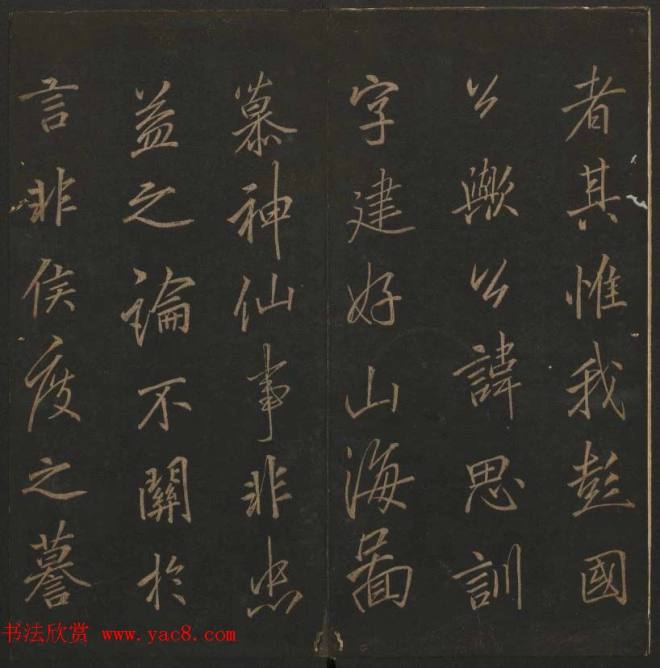 者其惟我彭國
公歟公諱思訓
字建好山海圖
慕神仙事非忠
益之論不關於
言非侯度之謩
书法欣赏 www.yac8.com